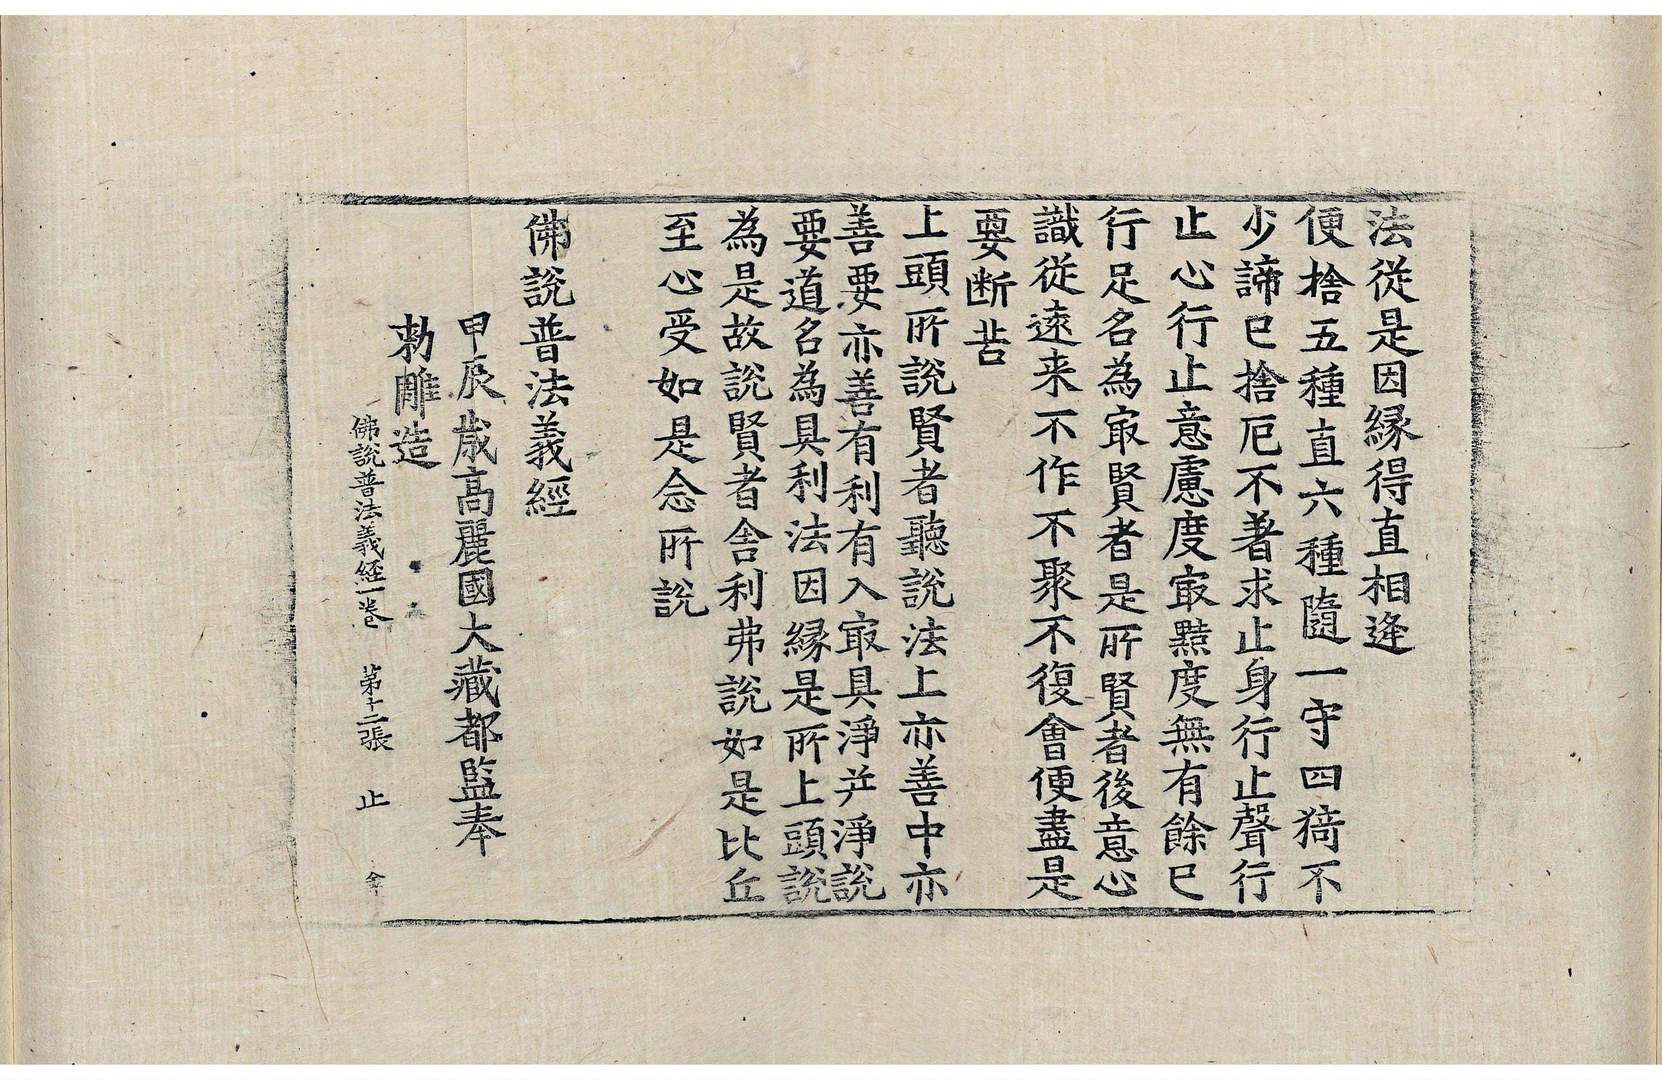 法從是因緣得直相逢
便捨五種直六種隨一守四猗不
少諦已捨厄不著求止身行止聲行
止心行止意慮度㝡黠度無有餘已
行足名為㝡賢者是所賢者後意心
識從遠来不作不聚不復會便盡是
要断苦
上頭所說賢者聽說法上亦善中亦
善要亦善有利有入㝡具淨并淨說
要道名為具利法因緣是所上頭說
為是故說賢者舍利弗說如是比丘
至心受如是念所說
佛說普法義經
甲辰歲高麗國大藏都監奉
勅雕造
佛說普法義経一卷 第十二張 止